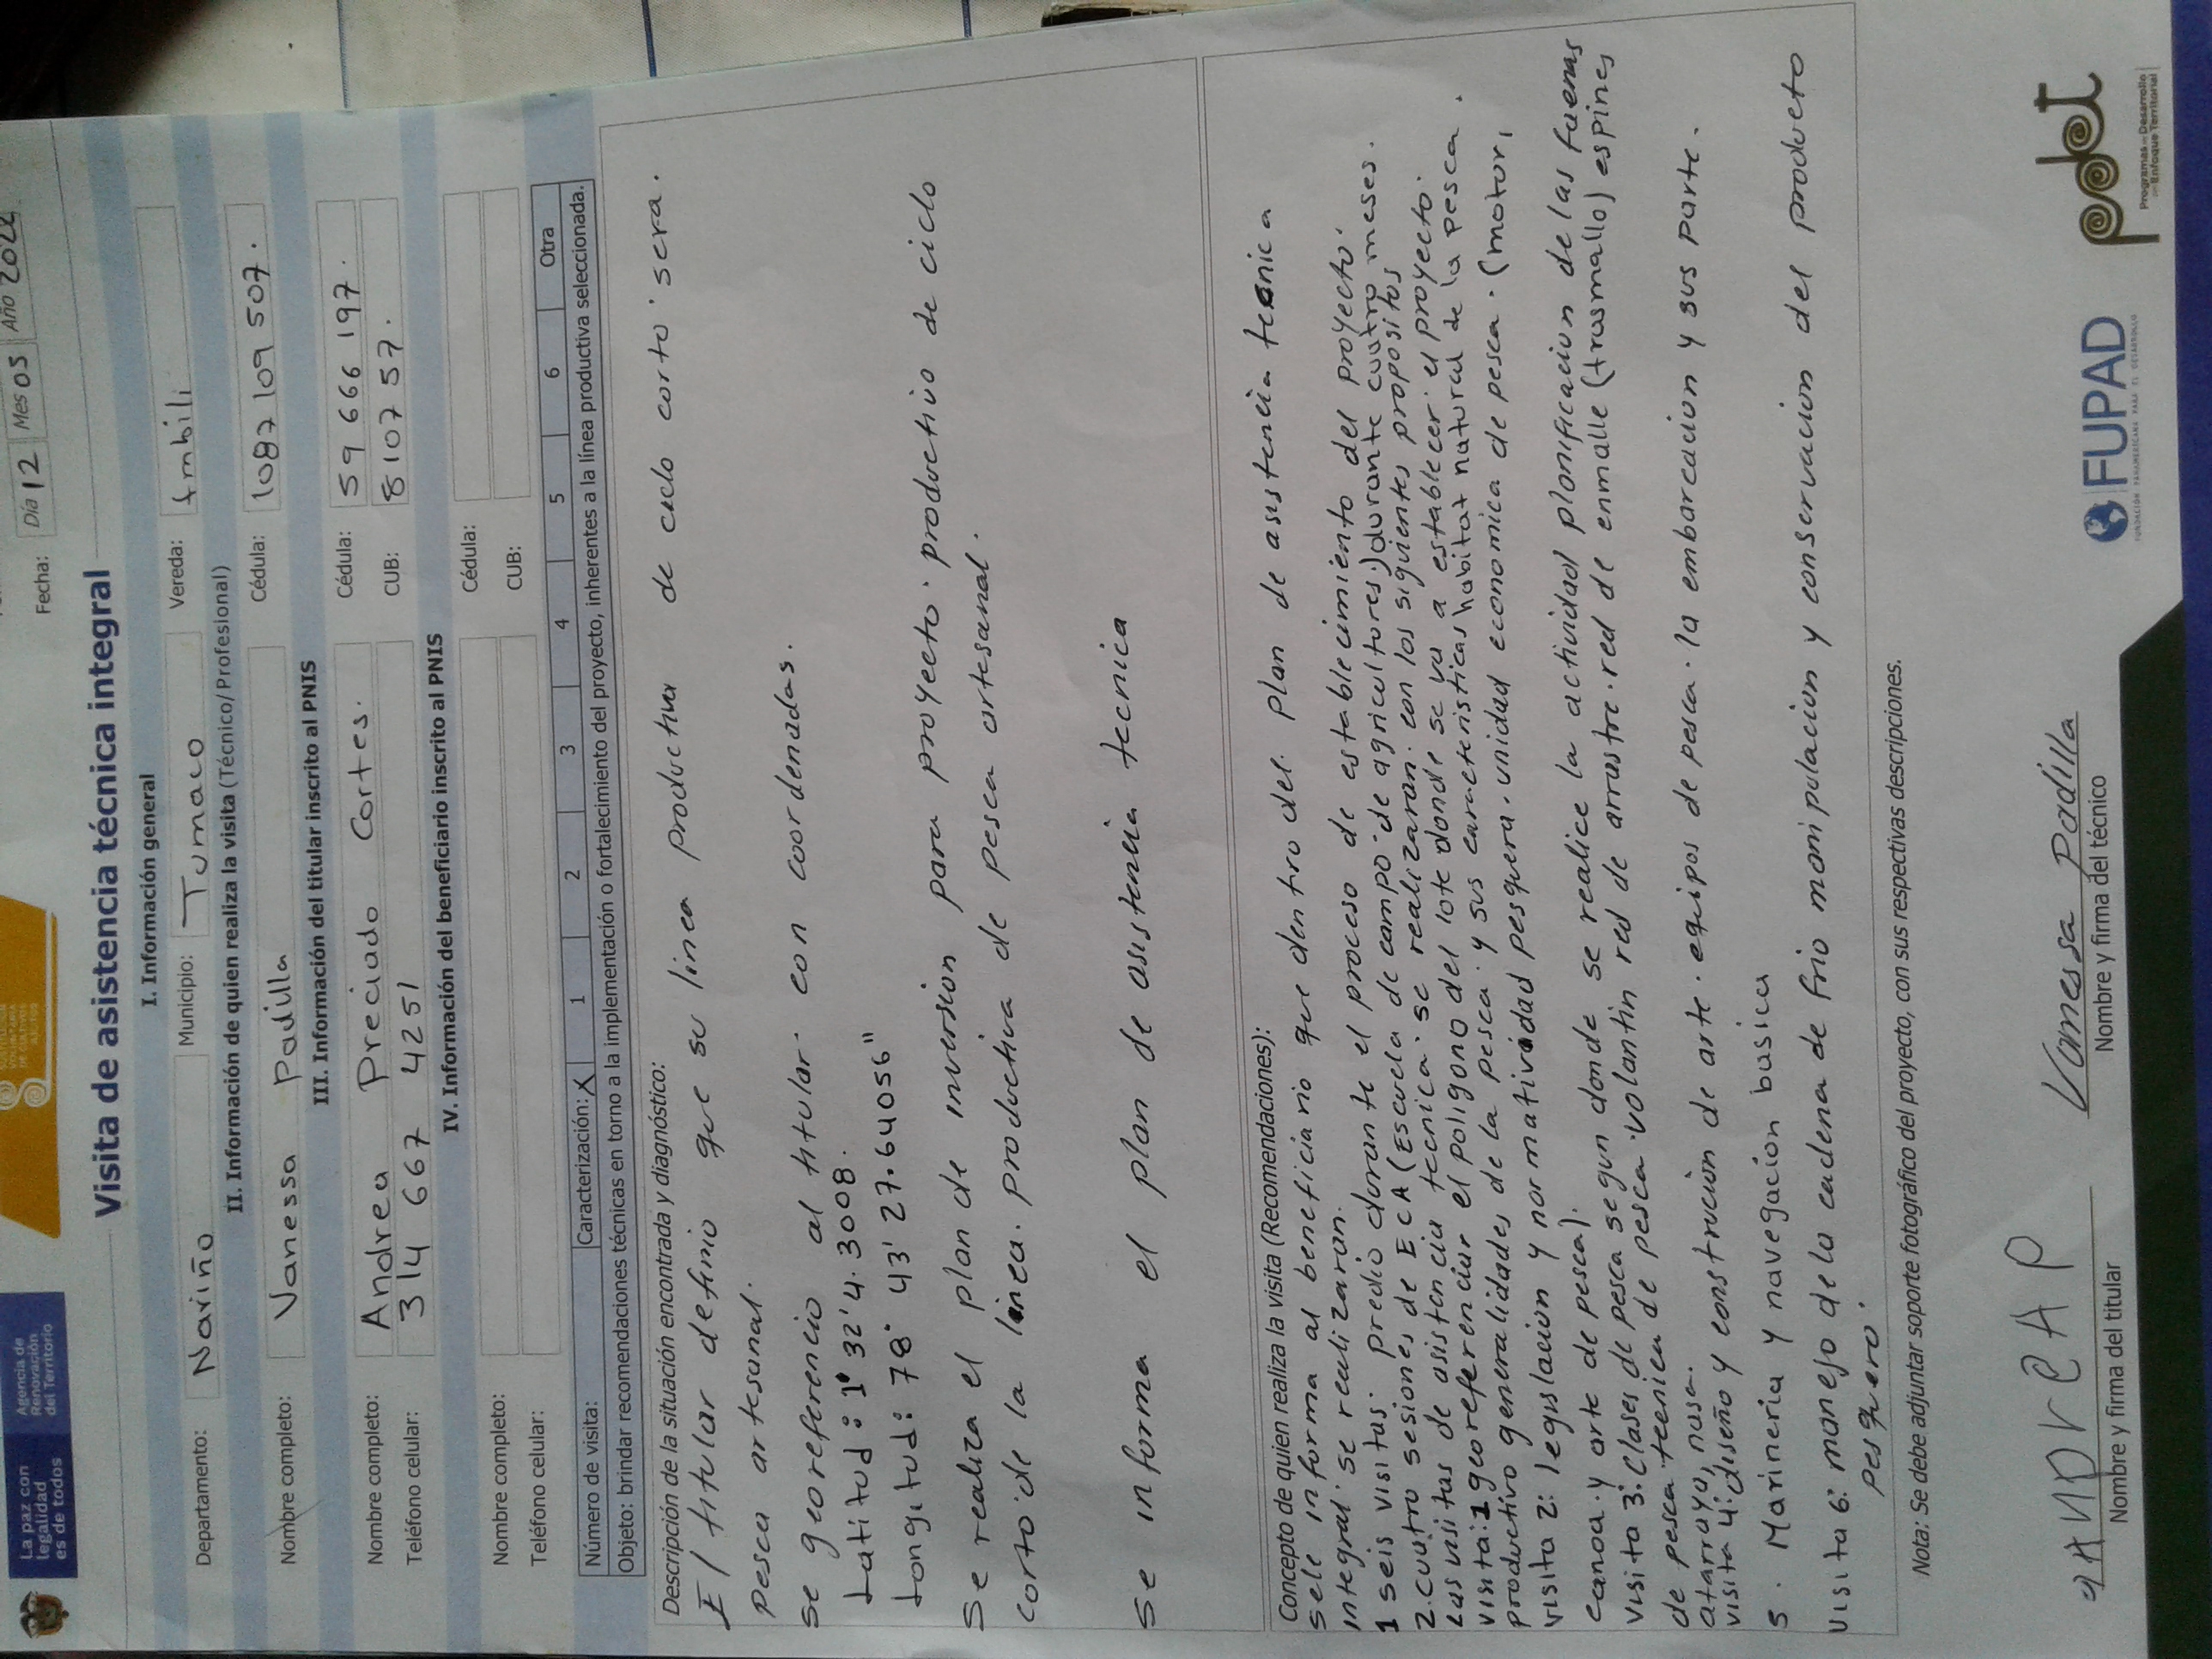 La paz con legalidad es de todos
Agencia de Renovación del Territorio
Fecha: Día 12 Mes 05 Año 2022
Visita de asistencia técnica integral
I. Información general
Departamento: Nariño Municipio: Tumaco Vereda: Imbili
II. Información de quien realiza la visita (Técnico/Profesional)
Nombre completo: Vanessa Padilla Cédula: 1087 109 507.
III. Información del titular inscrito al PNIS
Nombre completo: Andrea Preciado Cortes. Cédula: 59 666 197.
Teléfono celular: 314 667 4251 CUB: 8107 57.
IV. Información del beneficiario inscrito al PNIS
Nombre completo: Cédula:
Teléfono celular: CUB:
Número de visita: Caracterización: X 1 2 3 4 5 6 Otra
Objeto: brindar recomendaciones técnicas en torno a la implementación o fortalecimiento del proyecto, inherentes a la línea productiva seleccionada.
Descripción de la situación encontrada y diagnóstico:
El titular definio que su linea productiva de ciclo corto sera.
Pesca artesanal.
se georeferencio al titular. con coordenadas.
Latitud: 1° 32' 4.3008.
Longitud: 78° 43' 27.64056"
Se realiza el plan de inversion para proyecto. productivo de ciclo
corto de la linea. productiva de pesca artesanal.
se informa el plan de asistencia tecnica
Concepto de quien realiza la visita (Recomendaciones):
sele informa al beneficiario que dentro del. plan de asistencia tecnica
integral. se realizaran.
1 seis visitas. predio durante el proceso de establecimiento del proyecto.
2. cuatro sesiones de ECA (Escuela de campo de agricultores.) durante cuatro meses.
Las visitas de asistencia tecnica. se realizaran. con los siguientes propositos
visita: 1 georeferenciar el poligono del lote donde se va a establecer. el proyecto.
productivo generalidades de la pesca. y sus caracteristicas habitat natural de la pesca.
visita 2: legislacion y normatividad pesquera. unidad economica de pesca. (motor,
canoa. y arte de pesca).
visita 3: clases de pesca segun donde se realice la actividad planificacion de las faenas
de pesca tecnica de pesca. volantin red de arrastre. red de enmalle (trasmallo) espines
atarraya, nasa.
visita 4: diseño y construcion de arte. equipos de pesca. la embarcacion y sus parte.
5. Marineria y navegacion basica
visita 6: manejo de la cadena de frio manipulacion y conservacion del producto
pesquero.
Nota: Se debe adjuntar soporte fotográfico del proyecto, con sus respectivas descripciones.
ANDREA P
Nombre y firma del titular
Vanessa Padilla
Nombre y firma del técnico
FUPAD
FUNDACIÓN PANAMERICANA PARA EL DESARROLLO
pdet
Programas de Desarrollo con Enfoque Territorial